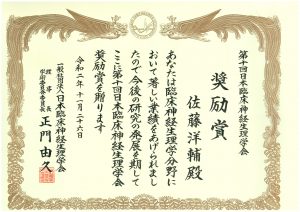 第十回日本臨床神経生理学会
奨励賞
佐藤洋輔殿
あなたは臨床神経生理学分野に
おいて著しい業績をあげられまし
たので今後の研究の発展を期して
ここに第十回日本臨床神経生理学会
奨励賞を贈ります
令和二年十一月二十六日
一般社団法人日本臨床神経生理学会
理事長
学術奨励賞委員長
正門由久